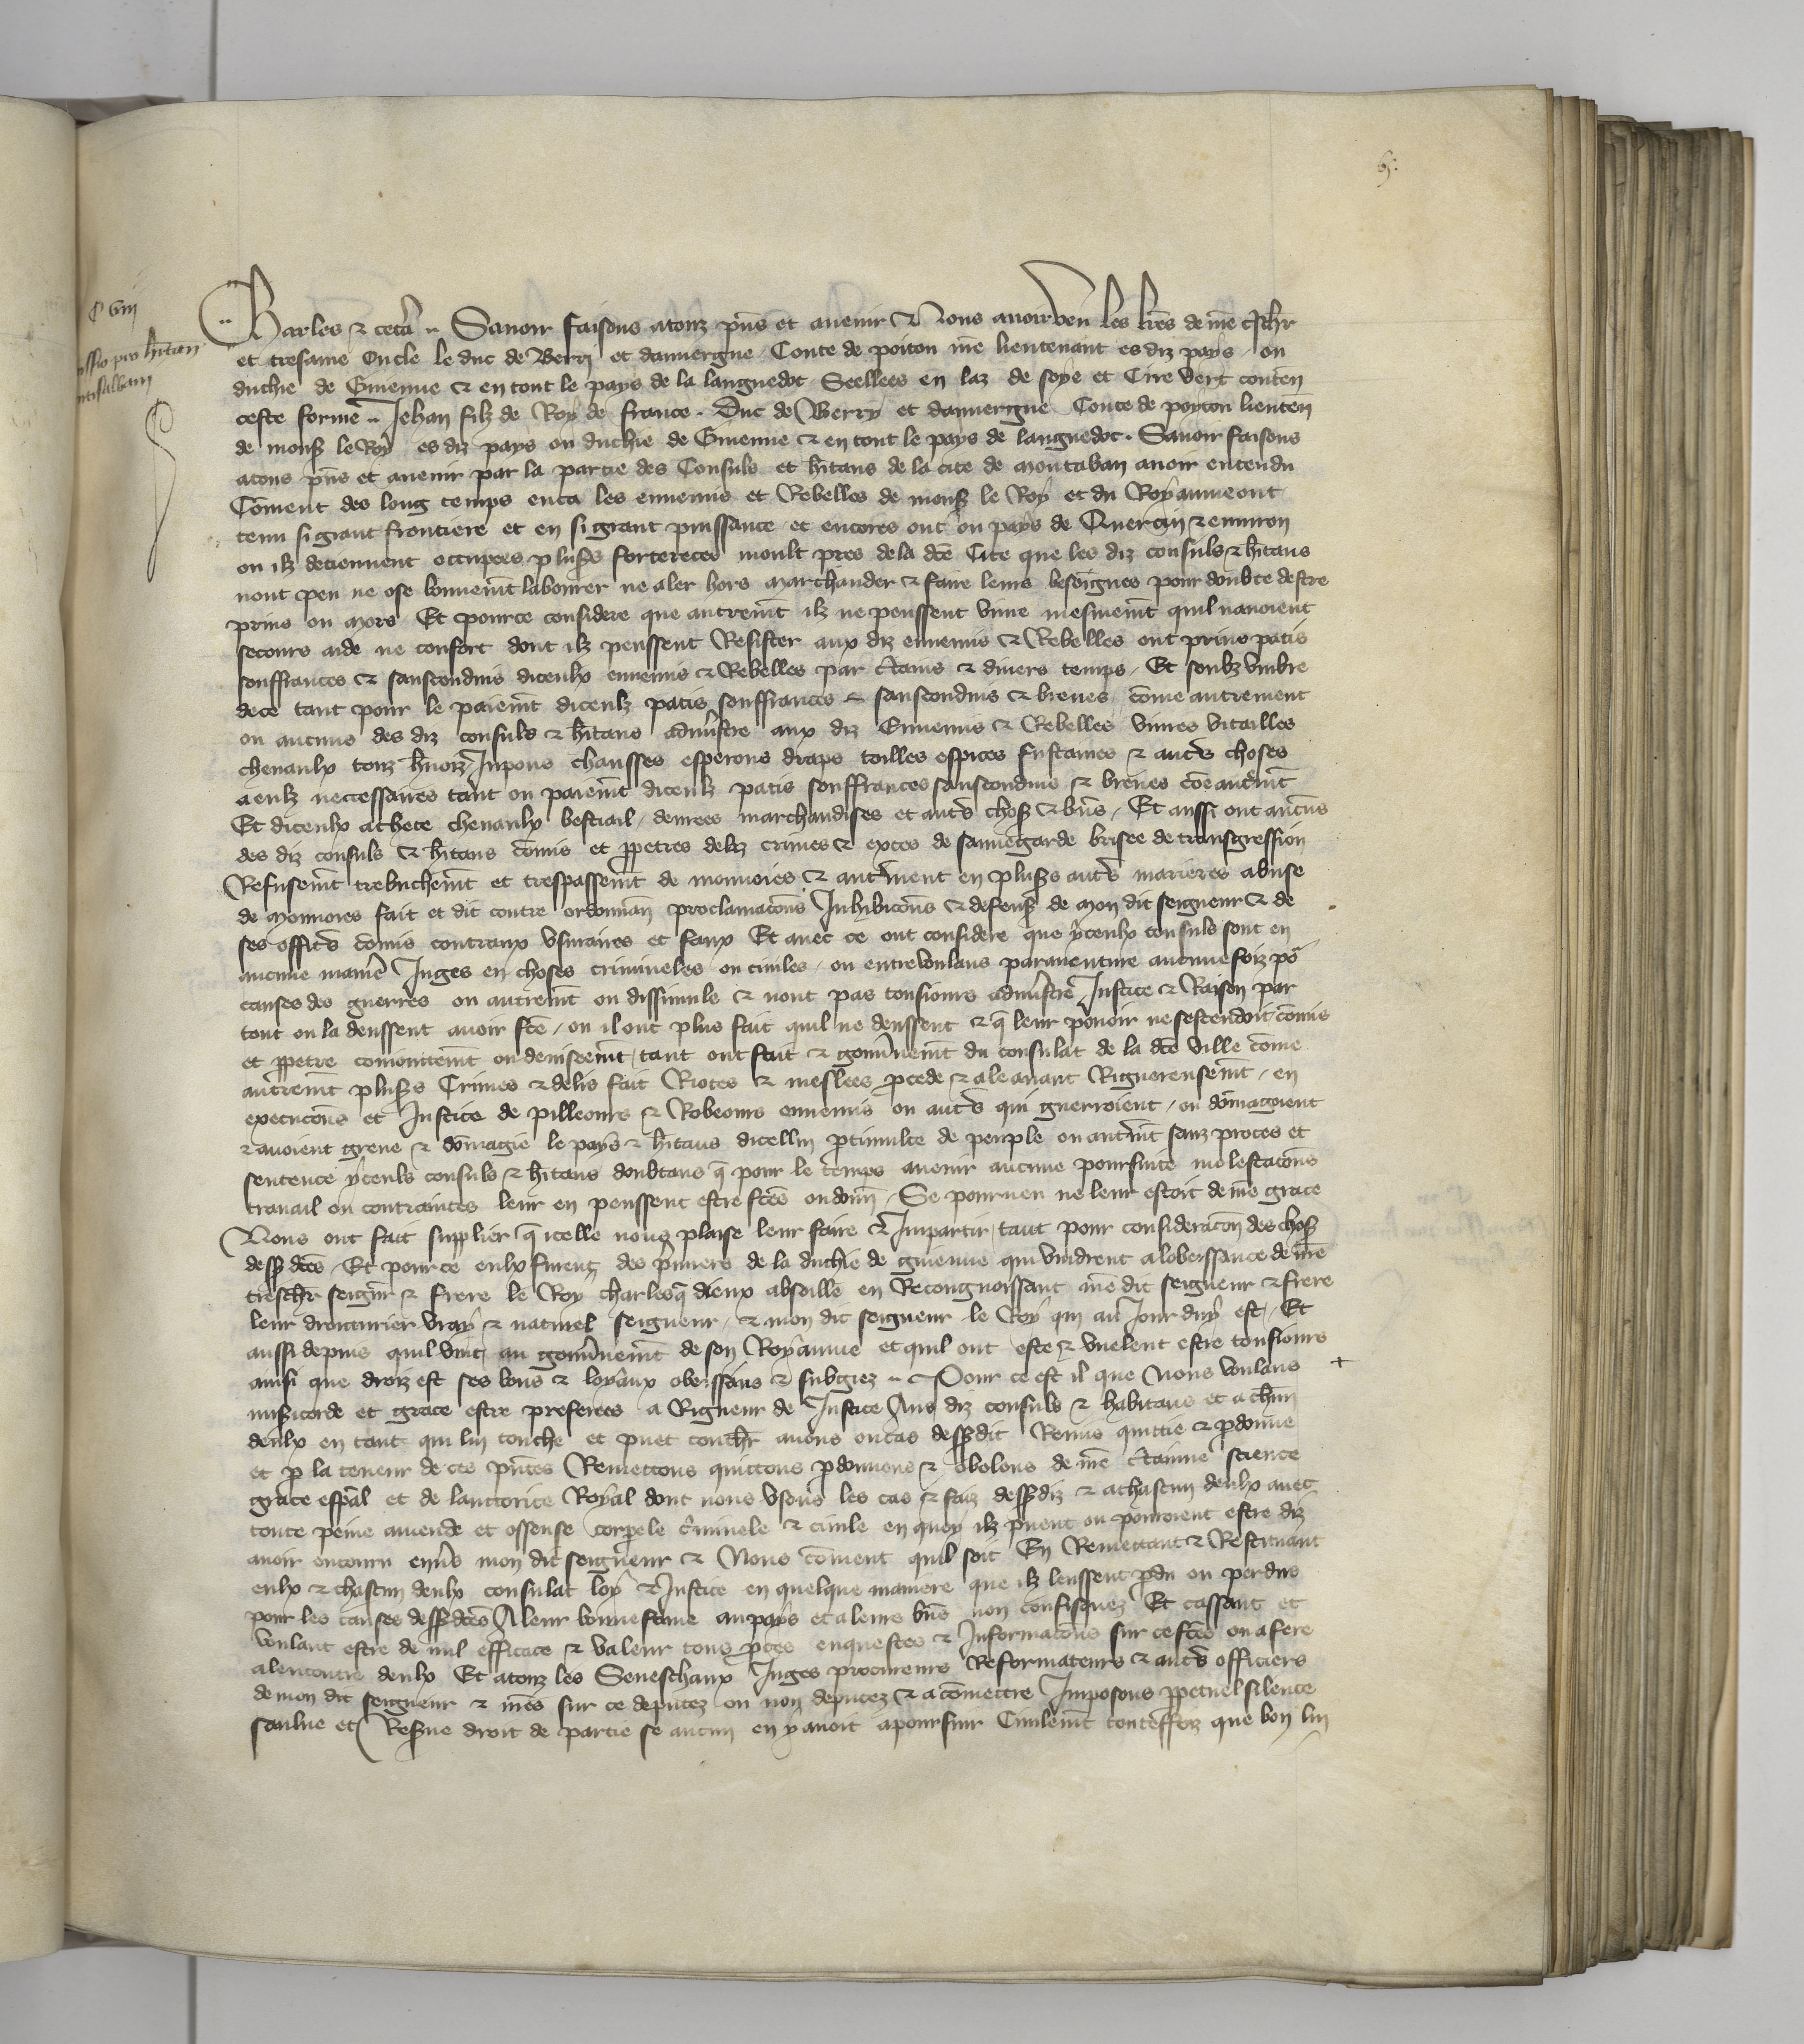 65
C viii
ssio pro hitan
ntisalbani
Charles & cetã Sauoir faisons atouz pñs et auenir Nous auoir veu les lrẽs de nrẽ chr
et tresame Oncle le duc de Berri et dauuergne Conte de poitou nrẽ lieutenant es diz pays ou
duchie de Guienne & en tout le pays de la languedoc Seellees en laz de soye et Cire vert conteñ
ceste forme Jehan filz de Roy de france Duc de Berry et dauuergne Conte de poytou lieuteñ
de mons le Roy es diz pays ou duchie de Guienne & en tout le pays de languedoc Sauoir faisons
atous pñs et auenir par la partie des Consuls et hitans de la cite de montaban auoir entendu
Cõment des long temps enca les ennemis et Rebelles de mons le Roy et du Royaume ont
tenu si grant frontiere et en si grant puissance et encores ont ou pays de Quercin & enuiron
ou ilz detiennent occupees plus's fortereces moult pres de la dcẽ Cite que les diz consuls & hitans
nont peu ne ose bonnemt labourer ne aler hors marchander & faire leurs besoignes pour doubte destre
prins ou mors Et pource considere que autremt ilz ne peussent viure mesmemt quil nauoient
secours aide ne confort dont ilz peussent Resister aux diz ennemis & Rebelles ont prins patis
souffrances & sansconduis diceulx ennemis & Rebelles par ctains & diuers temps Et soubz vmbre
dece tant pour le paiemt diceulz patis souffrances & sansconduis & breues cõme autrement
ou aucuns des diz consuls & hitans admistre aux diz Ennemis & Rebelles viures vitailles
cheuaulx touz hnoiz Jupons chausses esperons draps toilles espices fustaines & auts choses
aeulz neccessaires tant ou paiemt diceulz patis souffrances sansconduis & breues cõe autmt
Et diceulx achete cheuaulx bestiail denrees marchandises et auts chos & bñs Et aussi ont aucuns
des diz consuls & hitans cõmis et ppetres delz crimes & exces de sauuegarde brisee de transgression
Refusemt trebuchemt et trespassemt de monnoies & autment en plus's auts manieres abuse
de monnoies fait et dit contre ordonnañ proclamacõns Inhibicõns & defens de mon dit seigneur & de
ses offics cõmis contraux vsuraires et faux Et auec ce ont considere que yceulx consuls sont en
aucune manie Juges en choses crimineles ou ciuiles ou entrevoulans parauenture aucunefoiz po
causes des guerres ou autremt ou dissimule & nont pas tousiours admistre Justice & Raison par
tout ou la deussent auoir fcẽ ou il ont plus fait quil ne deussent & q leur pouoir ne sestendoit cõmis
et ppetre conioitemt ou deuiseemt tant ou fait & gouunemt du consulat de la dcẽ ville cõme
autremt plus's Crimes & delis fait Riotes & meslees pcede & ale auant Riguereusemt en
execucõns et Justice de pilleours & Robeours ennemis ou auts qui guerroient ou dõmagoient
& auoient greue & dõmagie le pays & hitans dicellui p timulte de peuple ou autmt sanz proces et
sentence yceuls consuls & hitans doubtans q pour le temps auenir aucune poursuite molestacõns
trauail ou contraintes leur en peussent estre fcẽs ou doñn Se pourueu ne leur estoit de nrẽ grace
Nous ont fait supplier q icelle nous plaise leur faire & Impartir tant pour consideracõn des chos
dess dcẽs Et pource eulx furent des pmiers de la duchie de guienne qui vindrent a lobeissance de nrẽ
treschr seigñr & frere le Roy charles q dieux absoille en Recongnoissant nrẽ dit seigneur & frere
leur droitturier vray & naturel seigneur & mon dit seigneur le Roy qui au Jour duy est Et
aussi depuis quil vint au gouunemt de son Royaume et quil ont este & vuelent estre tousiours
ainsi que droiz est ses bons & loyaux obeissans & subgiez Pour ce est il que Nous voulans +
misicorde et grace estre preferees a Rigueur de Justice Aus diz consuls & habitans et a chun
deulx en tant qui lui touche et puet touchr auons ou cas dess dit Remis quittie & pdonne
et p la teneur de ces pntes Remettons quittons pdonnons & abolons de nrẽ ctainne science
grace espãl et de lauctorite Royal dont nous vsons les cas & faiz dess diz & a chascun deulx auec
toute peine amende et offense corpele criminele & ciuile en quoy ilz puent ou pourroient estre diz
auoir encouru enus mon dit seigneur & Nous cõment quil soit En Remettant & Restituant
eulx & chascun deulx consulat loy & Justice en quelque maniere que ilz leussent pdu ou perdus
pour les causes dess dcẽs A leur bonne fame au pays et a leurs bñs non confisquez Et cassant et
voulant estre de nul efficace & valeur tous pces enquestes & Informacõns sur ce fcẽs ou afere
alencontre deulx Et atouz les Seneschaux Juges procureurs Reformateurs & auts officiers
de mon dit seigneur & nrẽs sur ce deputez ou non deputez & acõmettre Imposons ppetuel silence
saulue et Resue droit de partie se aucun en y auoit apoursuir Ciuilemt touteffoiz que bon lui